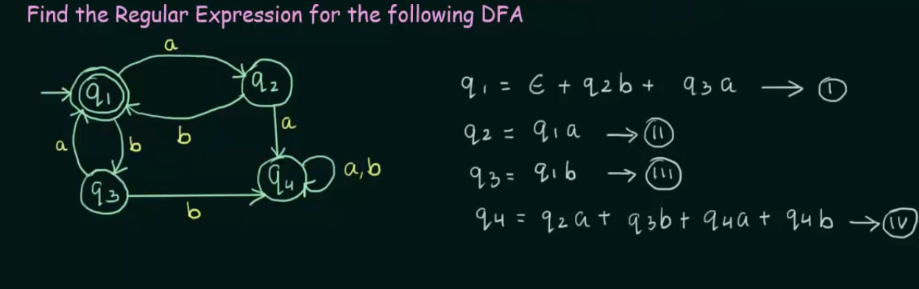 Find the Regular Expression for the following DFA
a
q1
q2
b
a
a
b
q3
q4
a,b
b
q1 = ϵ + q2b + q3a → (I)
q2 = q1a → (II)
q3 = q1b → (III)
q4 = q2a + q3b + q4a + q4b → (IV)